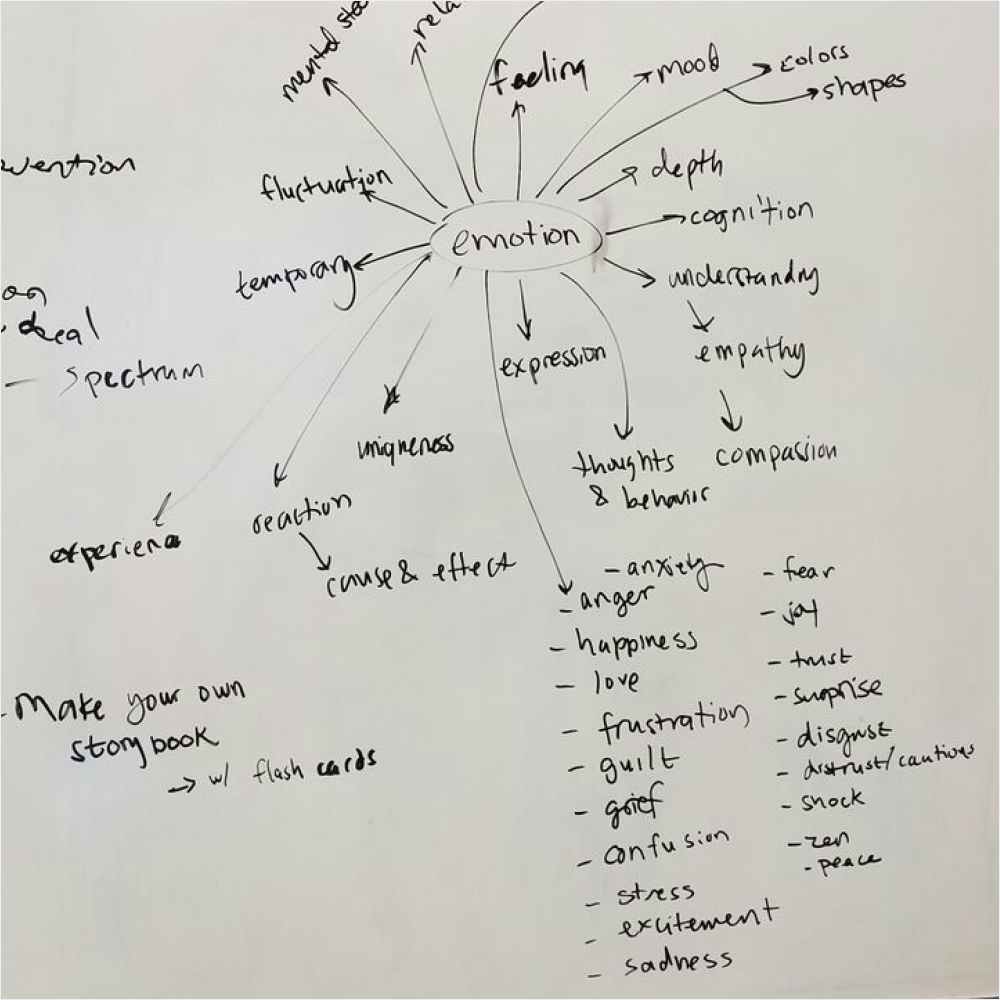 mental
feeling
mood
colors
shapes
fluctuation
depth
cognition
emotion
temporary
understandng
empathy
compassion
expression
thoughts
& behavior
uniqueness
reaction
cause & effect
deal
- spectrum
- Make your own
storybook
→ w/ flash cards
- anxiety
- anger
- happiness
- love
- frustration
- guilt
- grief
- confusion
- stress
- excitement
- sadness
- fear
- joy
- trust
- surprise
- disgust
- distrust/cautious
- shock
- zen
- peace